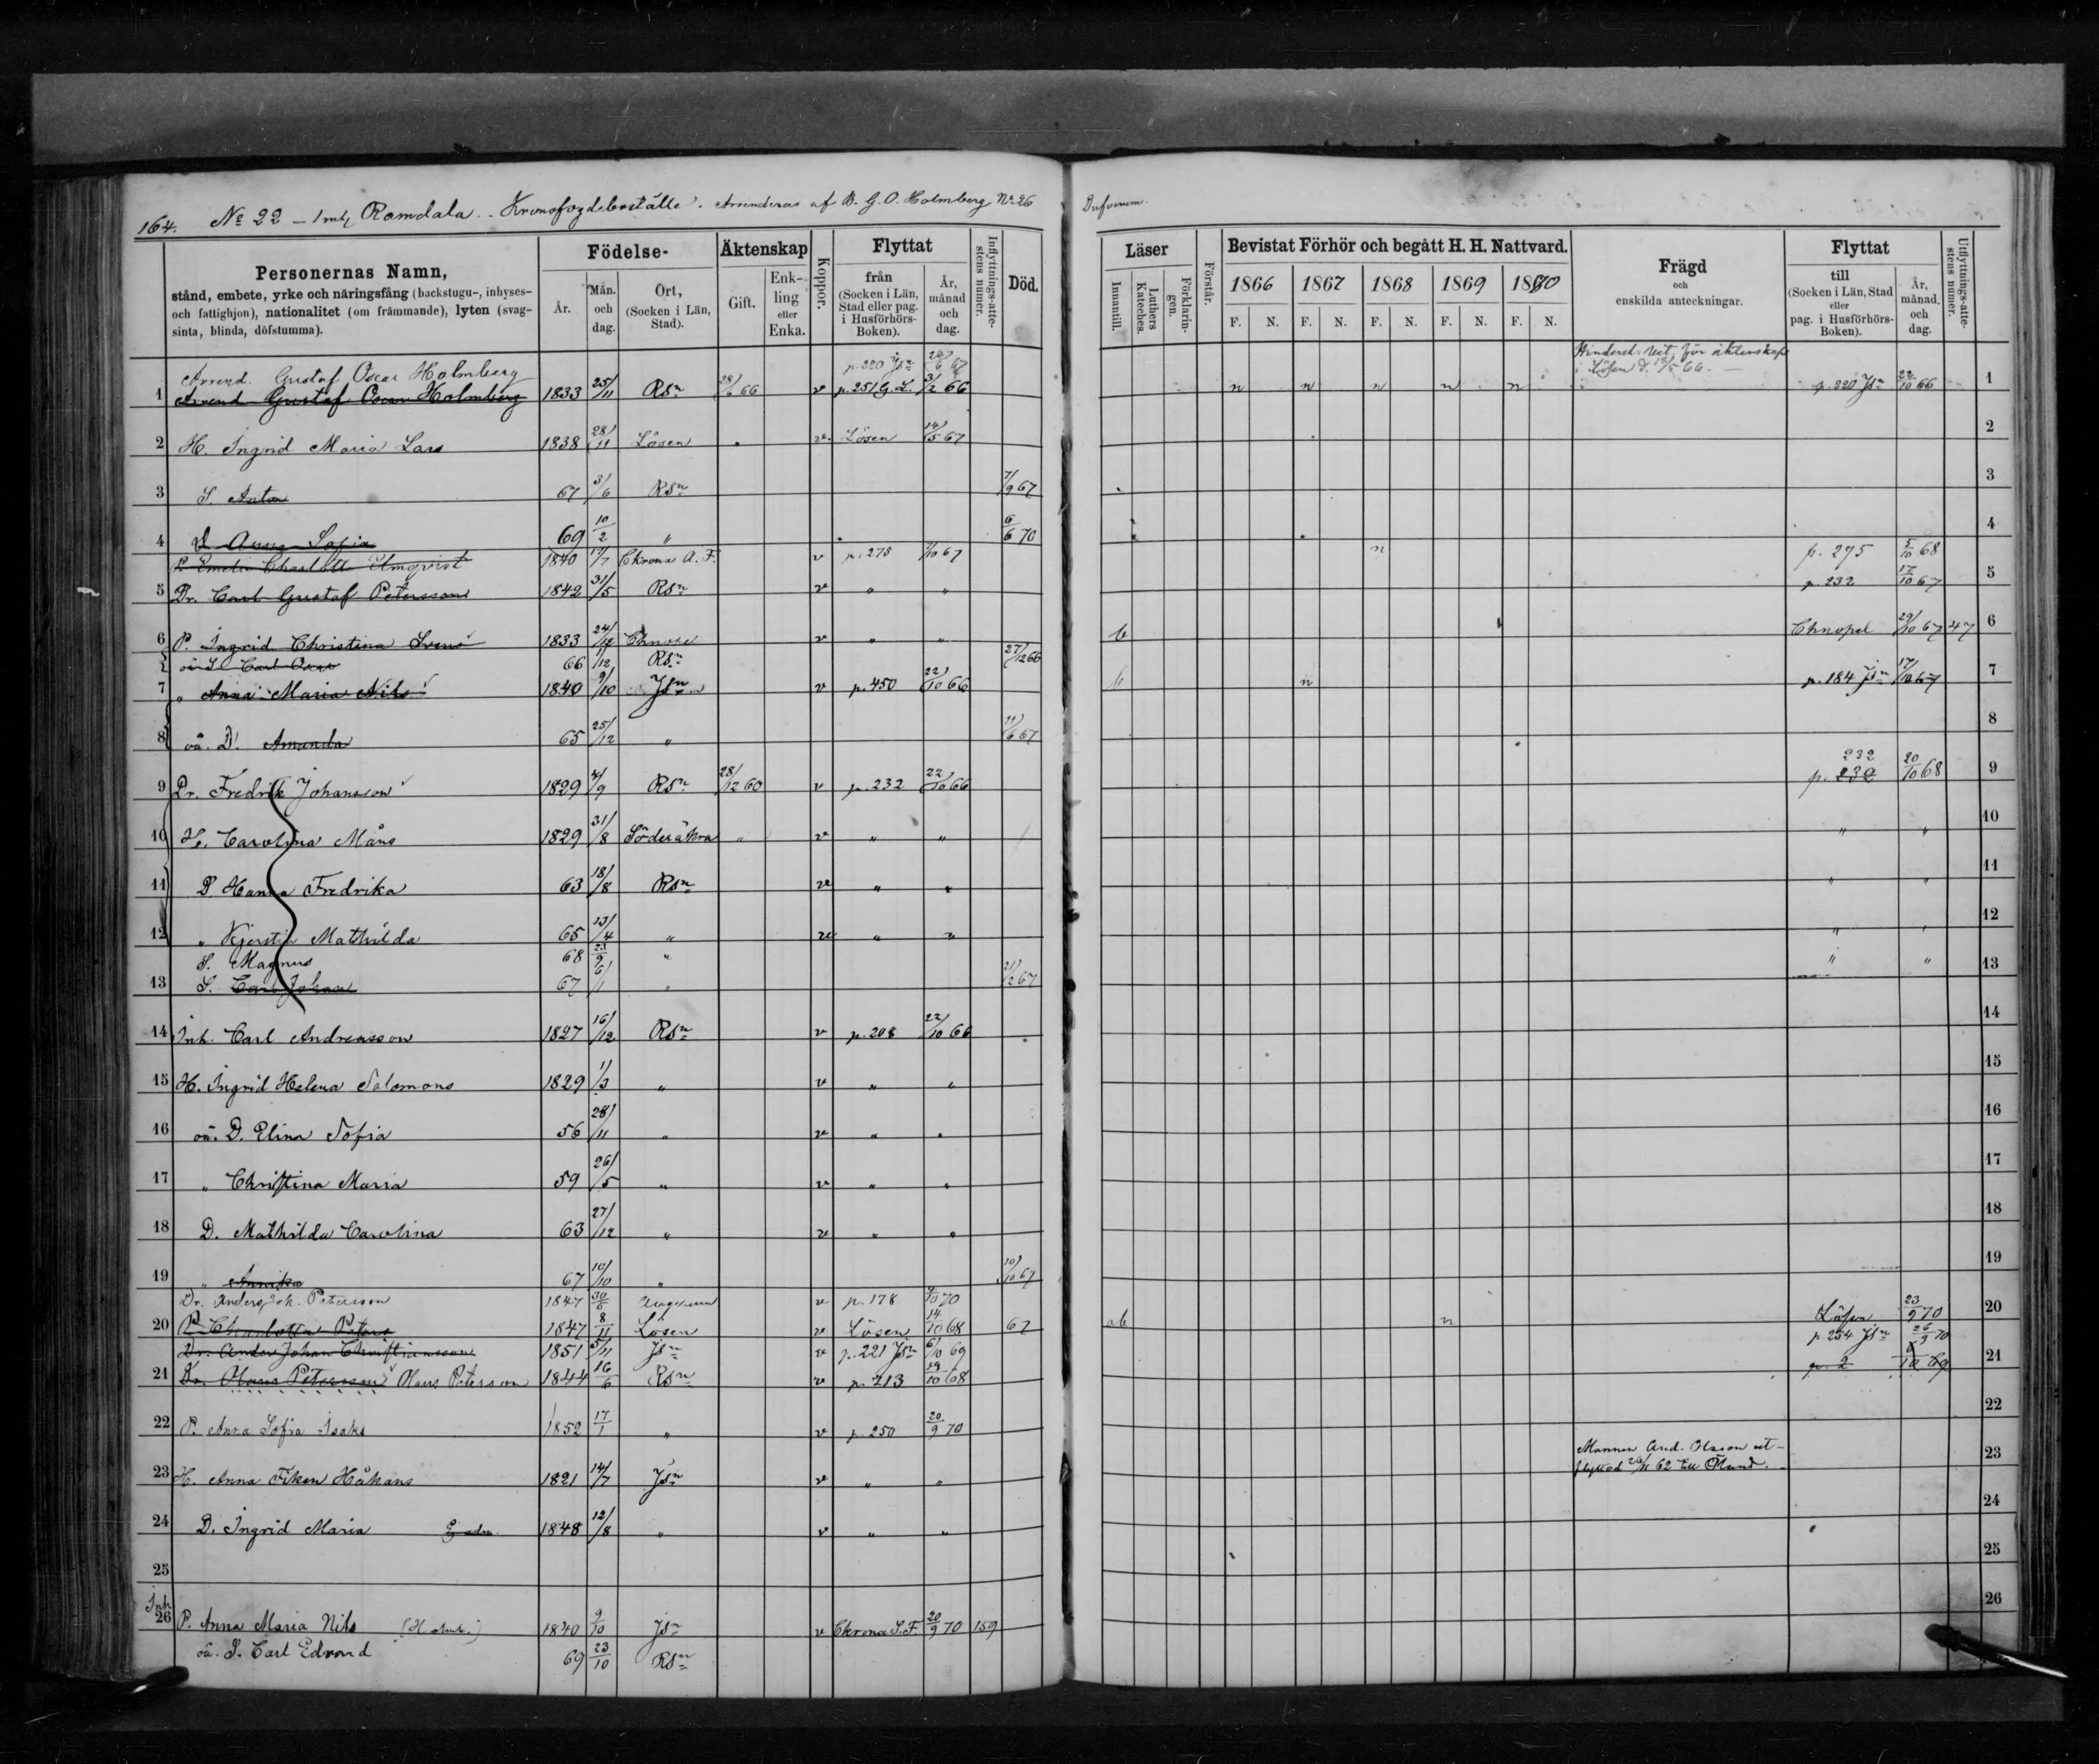 164. No 22 – 1 mtl Ramdala. Kronofogdeboställe. Arrenderas af B. G. O. Holmberg No 26
Personernas Namn,
stånd, embete, yrke och näringsfång (backstugu-, inhyses-
och fattighjon), nationalitet (om främmande), lyten (svag-
sinta, blinda, döfstumma).
Födelse-
År.
Mån. och dag.
Ort,
(Socken i Län, Stad).
Äktenskap
Gift.
Enk-
ling
eller
Enka.
Koppor.
Flyttat
från
(Socken i Län,
Stad eller pag.
i Husförhörs-
Boken).
År,
månad
och
dag.
Inflyttnings-atte-
stens numer.
Död.
Läser
Innantill.
Luthers
Kateches.
Förklarin-
gen.
Förstår.
Bevistat Förhör och begått H. H. Nattvard.
1866 1867 1868 1869 1870
F. N. F. N. F. N. F. N. F. N.
Frägd
och
enskilda anteckningar.
Flyttat
till
(Socken i Län, Stad
eller
pag. i Husförhörs-
Boken).
År,
månad,
och
dag.
Utflyttnings-atte-
stens numer.
Arrend. Gustaf Oscar Holmberg p. 220 Jsn 24/6 67
1 Arrend Gustaf Oscar Holmberg 1833 25/11 Rsn 28/6 66 v p. 251 G. L. 3/2 66 n n n n n Löfsen d. 13/5 66. p. 220 Jsn 22/10 66 1
2 H. Ingrid Maria Lars 1838 28/11 Lösen v. Lösen 14/5 67 2
3 S. Anton 67 3/6 Rsn 7/9 67 3
4 D Anna Sofia 69 10/2 " 6/6 70 4
P. Emelie Charlotta Almqvist 1840 17/7 Ckrona A. F. v p. 278 /10 67 n p. 275 5/10 68
5 Dr. Carl Gustaf Petersson 1842 31/5 Rsn v " " p. 232 17/10 67 5
6 P. Ingrid Christina Svens 1833 24/12 v " " b Chnopel 29/10 67 47 6
oä S Carl Oscar 66 1/12 Rsn 27/12 66
7 " Anna Maria Nils 1840 9/10 Jsn v p. 450 22/10 66 b n p. 184 Jsn 17/10 67 7
8 oä. D. Amanda 65 25/12 " 11/6 67 8
9 Dr. Fredrik Johansson 1829 4/9 Rsn 28/12 60 v p. 232 22/10 66 p. 232 232 20/10 68 9
10 H. Carolina Måns 1829 31/8 Söderåkra " v " " " " 10
11 D Hanna Fredrika 63 18/8 Rsn v " " " " 11
12 " Kjerstin Mathilda 65 13/4 " v " " " " 12
S. Magnus 68 23/9 " " "
13 S. Carl Johan 67 6/1 " 21/2 67 13
14 Inh. Carl Andreasson 1827 16/12 Rsn v p. 208 22/10 66 14
15 H. Ingrid Helena Salomons 1829 1/3 " v " " 15
16 oä. D. Elina Sofia 56 28/11 " v " " 16
17 " Christina Maria 59 26/5 " v " " 17
18 D. Mathilda Carolina 63 27/12 " v " " 18
19 " Annika 67 10/10 " 10/10 67 19
Dr. Anders Joh. Petersson 1847 30/6 Augerum v p. 178 /10 70
20 P. Charlotta Peters 1847 8/11 Lösen v Lösen 14/10 68 67 ab n Lösen 23/9 70 20
Dr. Anders Johan Christiansson 1851 5/11 Jsn v p. 221 Jsn 6/10 69 p. 254 Jsn 26/9 70
21 Dr. Olaus Petersson Olaus Petersson 1844 16/6 Rsn v p. 213 19/10 68 p. 2 /10 69 21
22 P. Anna Sofia Isaks 1852 17/1 " v p. 250 20/9 70 22
Mannen And. Olsson ut-
23 H. Anna Fiken Håkans 1821 14/7 Jsn v " " flyttad 26/11 62 till Öland. 23
24 D. Ingrid Maria 1848 12/8 " v " " 24
25 25
Inh.
26 P. Anna Maria Nils (Holmb.) 1840 9/10 Jsn v Ckrona S. F. 20/9 70 159 26
oä. S. Carl Edvard 69 23/10 Rsn